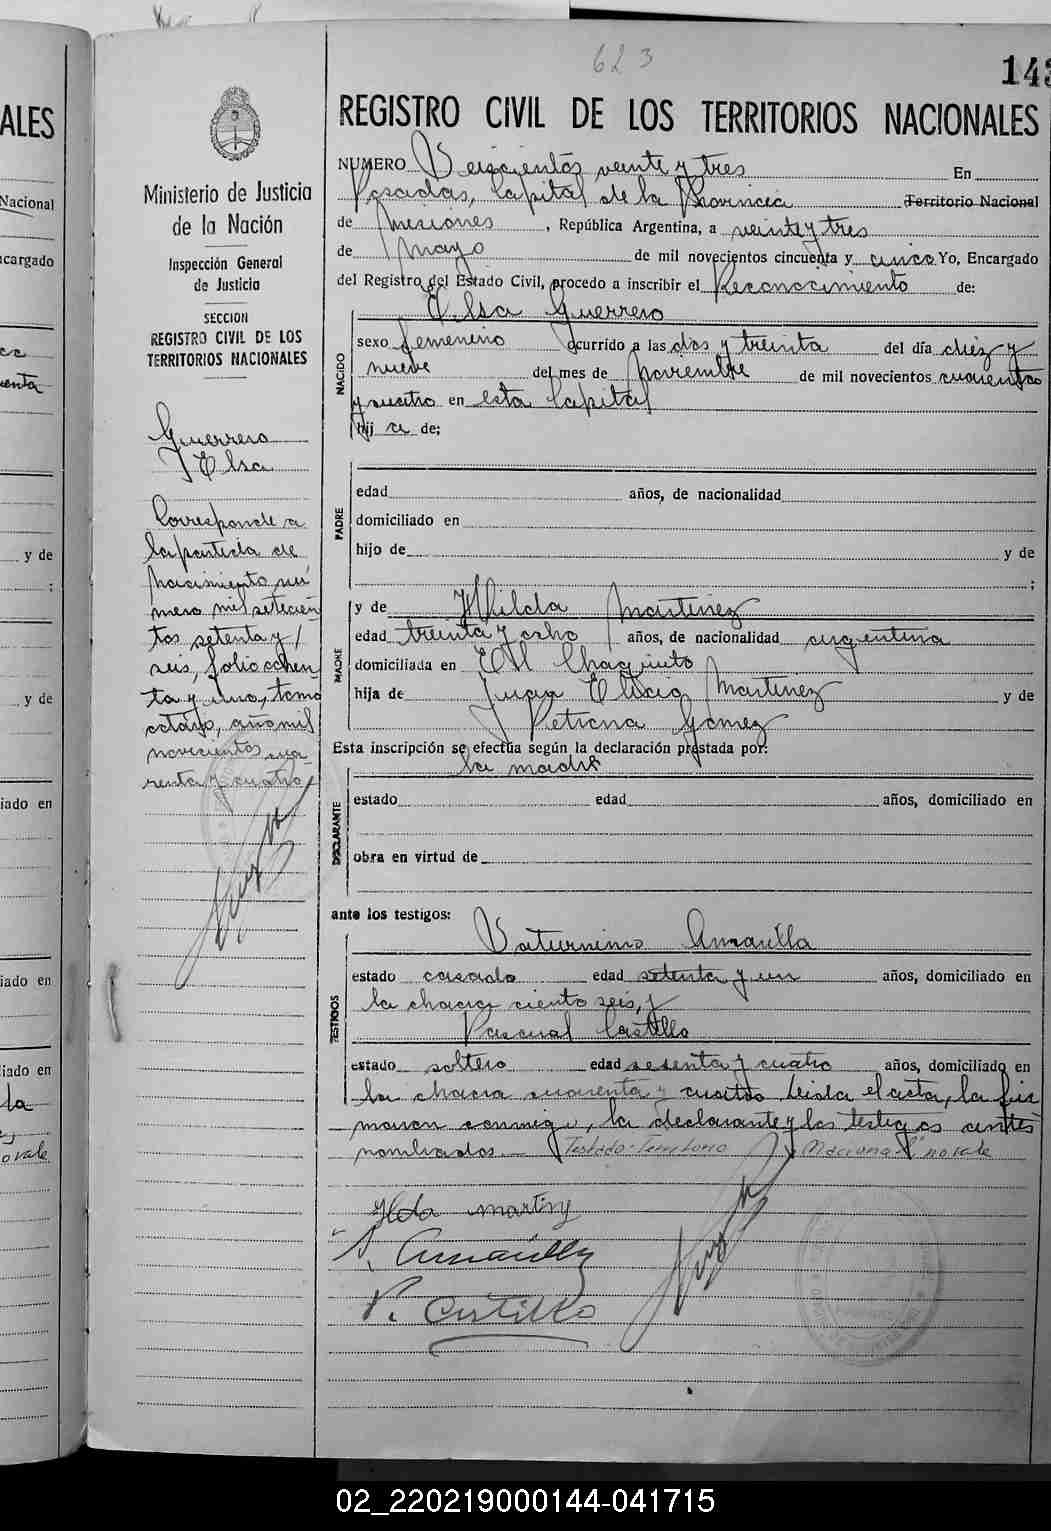 623
143
REGISTRO CIVIL DE LOS TERRITORIOS NACIONALES
NUMERO Seiscientos veinte y tres En
Posadas, Capital de la Provincia Territorio Nacional
de Misiones, República Argentina, a veinte y tres
de mayo de mil novecientos cincuenta y cinco Yo, Encargado
del Registro del Estado Civil, procedo a inscribir el Reconocimiento de:
Elsa Guerrero
NACIDO
sexo femenino ocurrido a las dos y treinta del día diez y
nueve del mes de Noviembre de mil novecientos cuarenta
y cuatro en esta Capital
hija de;
PADRE
edad años, de nacionalidad
domiciliado en
hijo de y de
;
MADRE
y de Hilda Martinez
edad treinta y ocho años, de nacionalidad argentina
domiciliada en El Chaquito
hija de Juan Martinez y de
Petrona Gómez
Esta inscripción se efectúa según la declaración prestada por:
la madre
DECLARANTE
estado edad años, domiciliado en
obra en virtud de
ante los testigos:
TESTIGOS
Saturnino Amarilla
estado casado edad setenta y un años, domiciliado en
la chacra ciento seis, y
Pascual Castillo
estado soltero edad sesenta y cuatro años, domiciliado en
la chacra cuarenta y cuatro Leida el acta, la fir
maron conmigo, la declarante y los testigos antes
nombrados. Testado: Territorio Nacional "no vale
Ilda
S. Amarilla
P. Castillo
Ministerio de Justicia
de la Nación
Inspección General
de Justicia
SECCION
REGISTRO CIVIL DE LOS
TERRITORIOS NACIONALES
Guerrero
Elsa
Corresponde a
la partida de
nacimiento nú
mero mil setecien
tos setenta y
seis, folio ochen
ta y uno, tomo
octavo, año mil
novecientos cua
renta y cuatro
ALES
Nacional
cargado
y de
;
y de
iado en
iado en
iado en
la
o vale
02_220219000144-041715